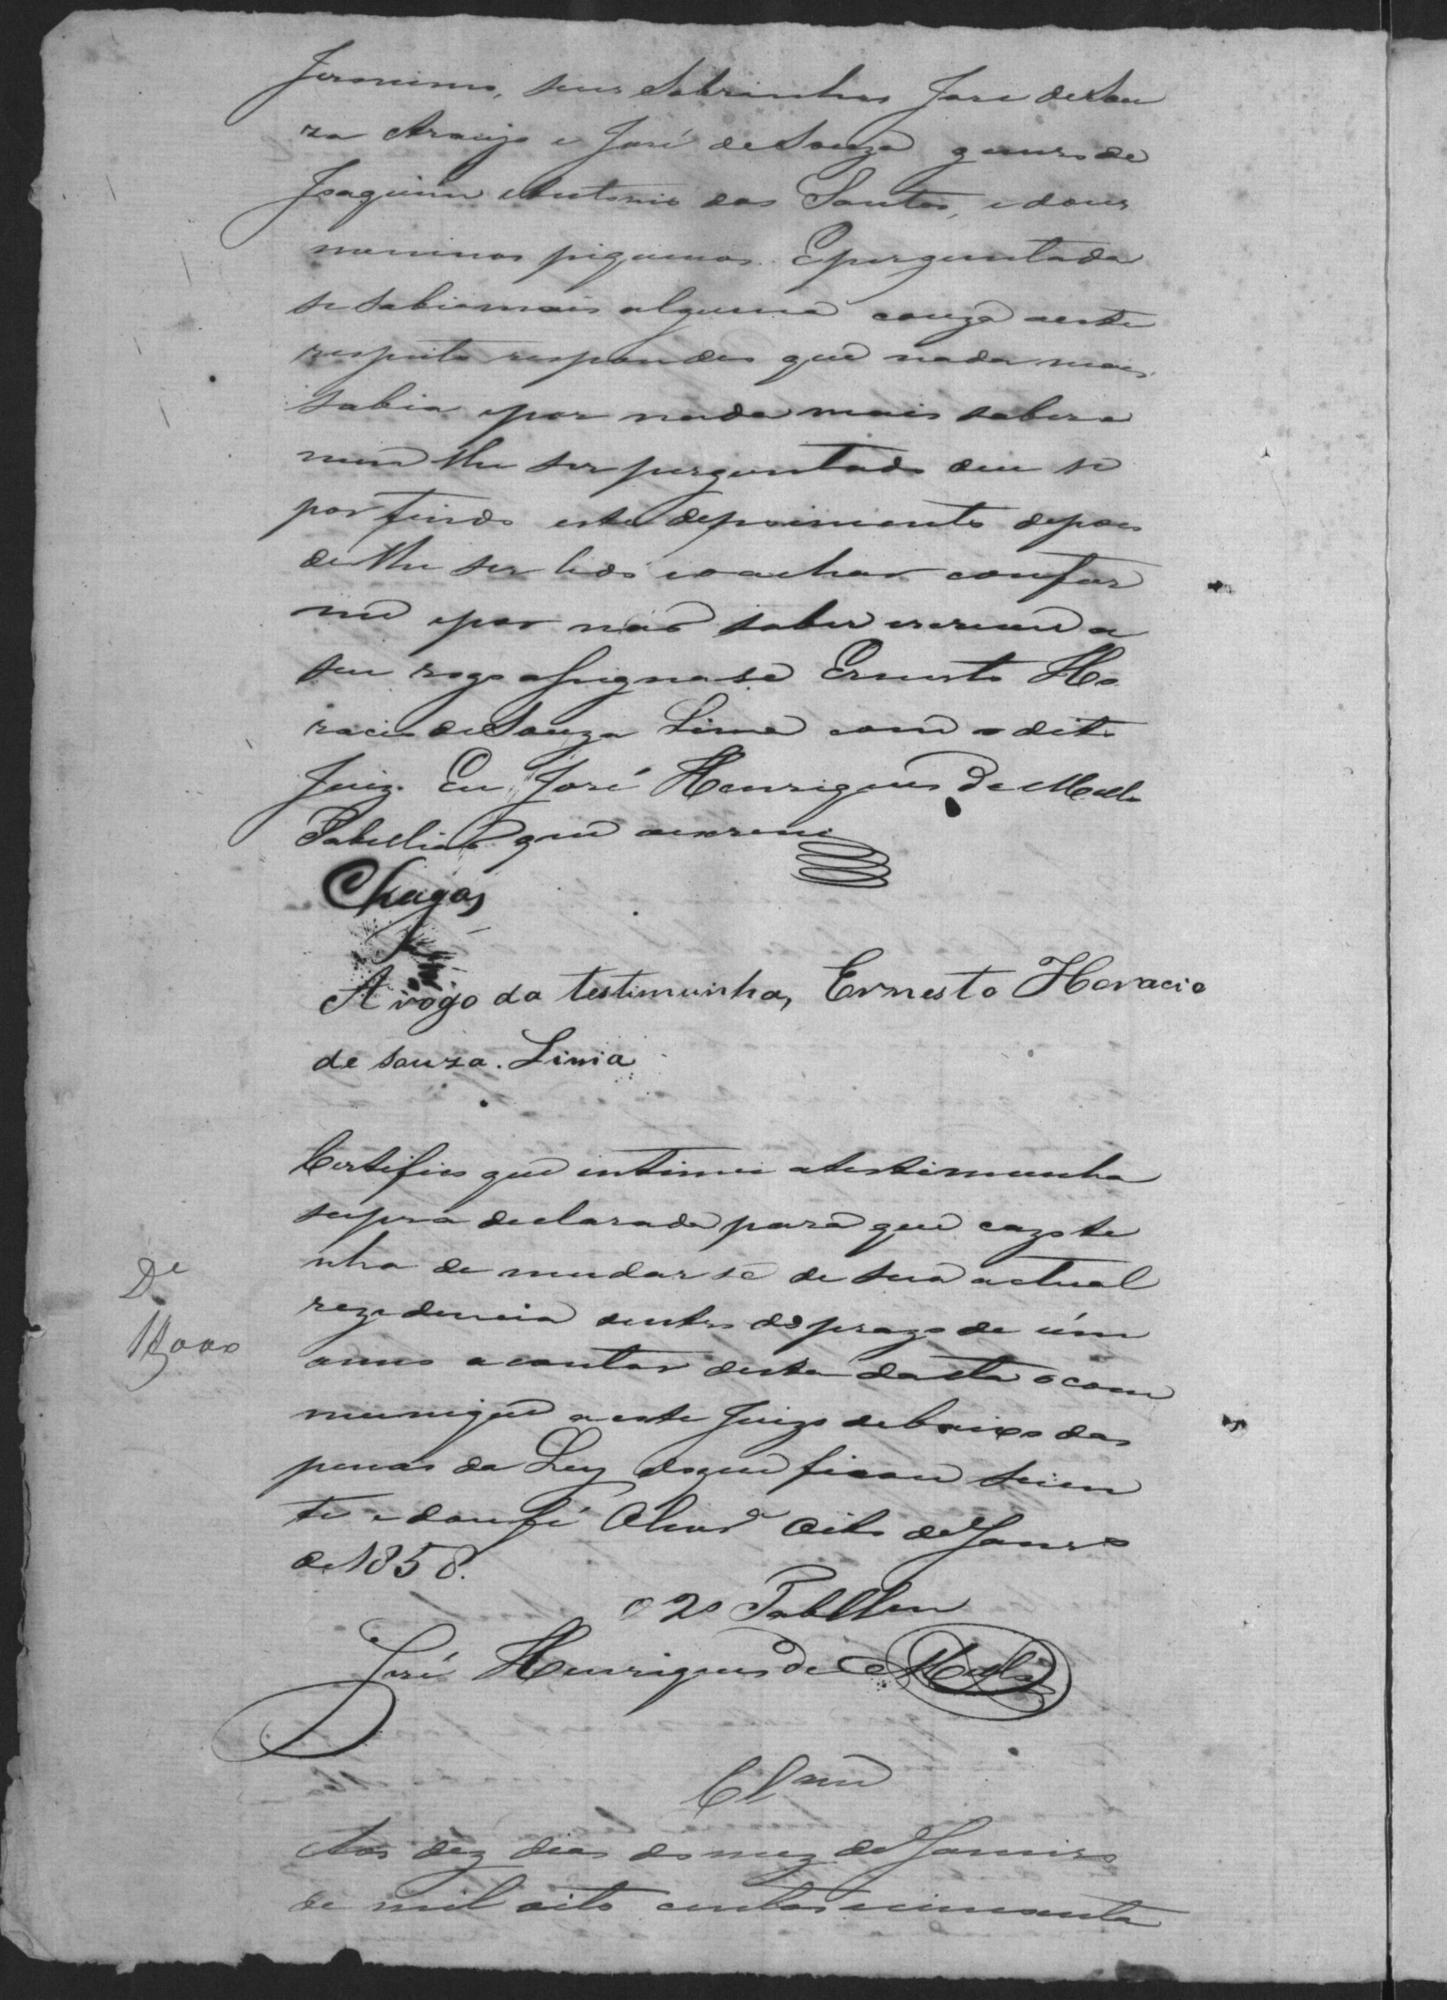 Jeronimo, seus Sobrinhos Jose de Sou
za Araujo e José de Souza genro de
Joaquim Antonio dos Santos, e dous
meninos piquenos. E perguntada
se sabia mais alguma couza aeste
respeito respondeo que nada mais
sabia e por nada mais saber e
nem lhe ser perguntado deu se
por findo este depoimento depois
de lhe ser lido e o achar confor
me e por não saber escrever a
seu rogo assigna se Ernesto Ho
racio de Souza Lima com o dito
Juiz. Eu José Henriques de Mello
Tabellião que o escrevi
Chagas
A rogo da testimunha, Ernesto Horacio
de Souza. Lima
Certifico que intimei a testimunha
supra declarada para que cazo te
nha de mudar se de sua actual
rezidencia dentro do prazo de úm
anno a contar desta datta o com
munique a este Juizo debaixo das
penas da Ley do que ficou scien
te e dou fé oito de Janro
de 1858.
O 2o Tabellam
José Henriques de Mello
De
1$000
Clzam
Aos dez dias do mez de Janeiro
de mil oito centos e cincoenta